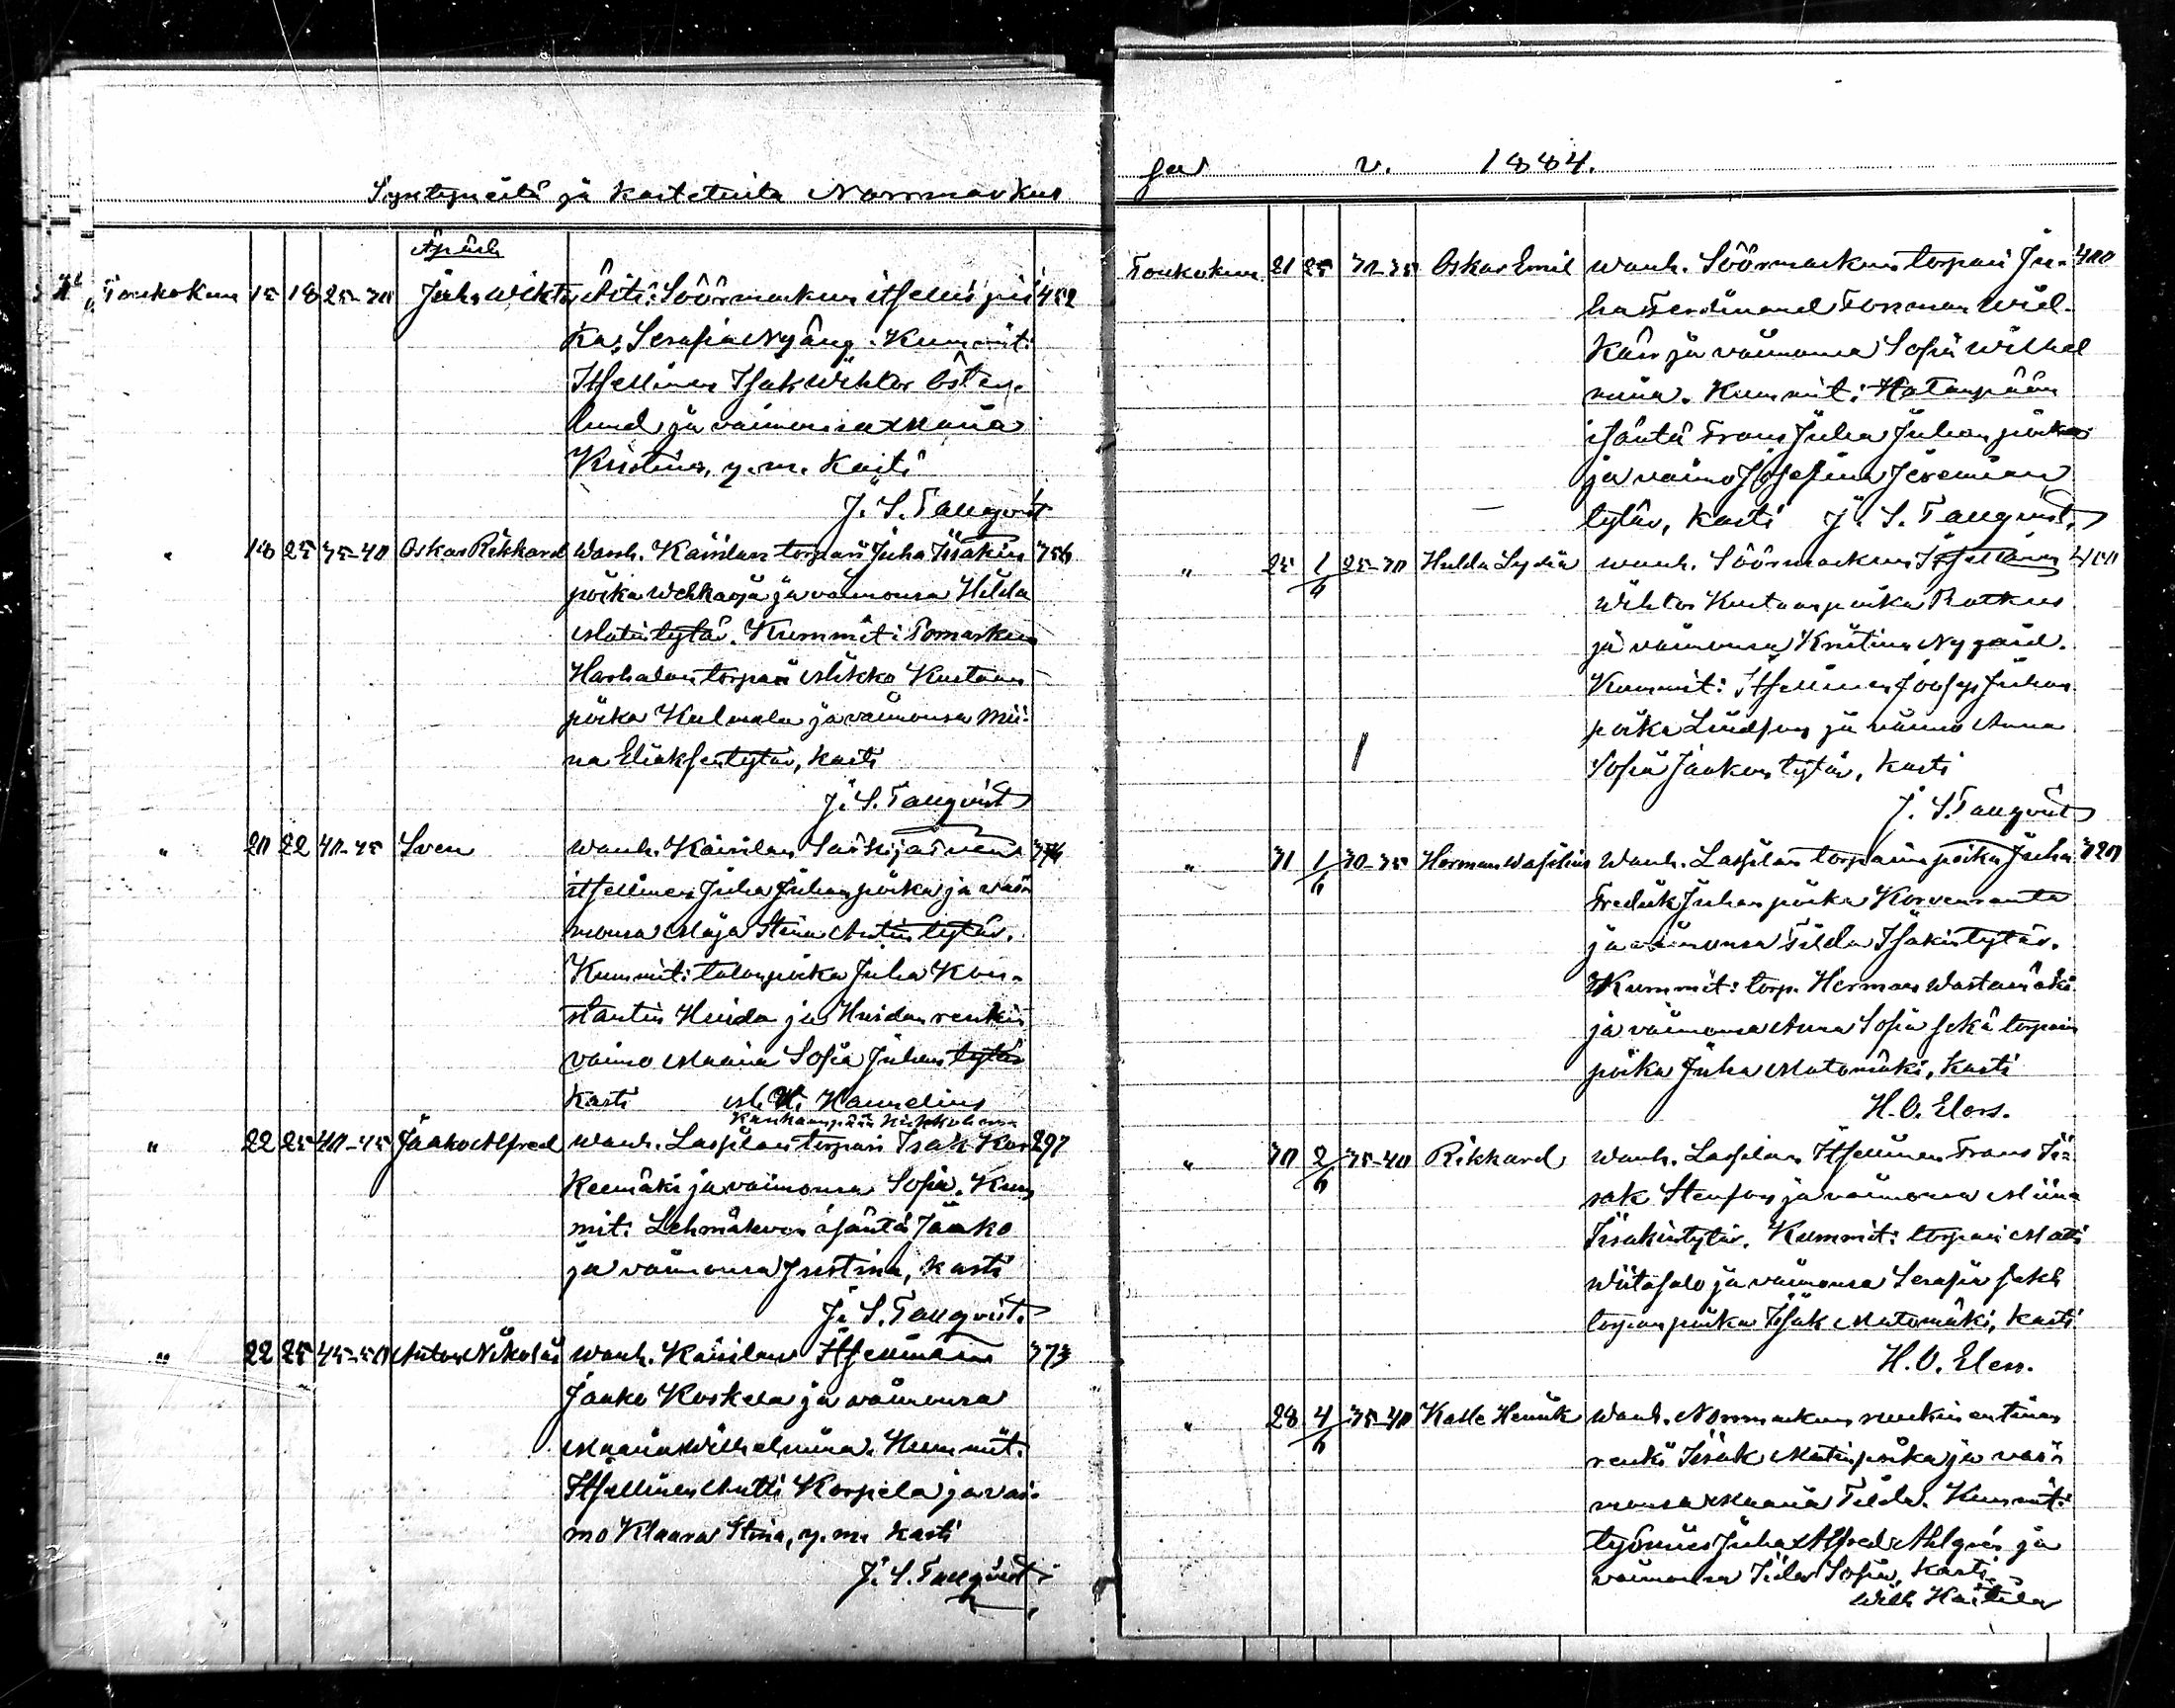 Syntyneitä ja kastetuita Norrmarkus
Äpärä
Toukokuu 15 18 25-30 Juho Wihtor Äiti: Söörmarkun itsellis pii- 452
ka, Serafia Nygång. Kummit:
Itsellinen Isak Wihtor Östen-
lund ja vaimonsa Maria
Kristina, y.m. Kasti
J. S. Tanqvist
" 18 25 35-40 Oskar Rikkard Wanh. Kairilan torpari Juha Iisakin 356
poika Wehkaoja ja vaimonsa Hilda
Matintytär. Kummit: Pomarkun
Harhalan torpari Mikko Kustaan
poika Kulmala ja vaimonsa Mii-
na Eliaksentytär, Kasti
J. S. Tanqvist
" 20 22 40-45 Sven Wanh. Kairilan
itsellinen Juha Juhanpoika ja vai-
monsa Maja Stina Antintytär.
Kummit: talonpoika Juha Kon-
stantin Huida ja Huidan renkin
vaimo Maria Sofia Juhantytär
Kasti M. W. Hannelius
Kankaanpään Kirkkoherra
" 22 25 40-45 Jaako Alfred Wanh. Lassilan torpari Isak Kor- 297
keemäki ja vaimonsa Sofia. Kum-
mit: Lehmäkoron isäntä Jaako
ja vaimonsa Justina, Kasti
J. S. Tanqvist
" 22 25 45-50 Anton Nikolai Wanh. Kairilan Itsellinen 373
Jaako Koskela ja vaimonsa
Maria Wilhelmina. Kummit:
Itsellinen Antti Korpela ja vai-
mo Klaara Stina, y.m. Kasti
J. S. Tanqvist
sa v. 1884.
Toukokuu 21 25 30-35 Oskar Emil Wanh. Söörmarkun torpari Ju- 400
ha Ferdinand Forsman
ja vaimonsa Sofia Wilhel
mina. Kummit: Hatanpään
isäntä Frans Juha Juhanpoika
ja vaimo Josefina Jeremian
tytär, Kasti J. S. Tanqvist
" 25 1/6 25-30 Hulda Lydia Wanh. Söörmarkun Itsellinen
Wihtor Kustaanpoika Rotkus
ja vaimonsa Kristina Nygård.
Kummit: Itsellinen Josep Juhan
poika Lindfors ja vaimo Anna
Sofia Jaakontytär, Kasti
J. S. Tanqvist
" 31 1/6 30-35 Herman Wasilius Wanh. Lassilan torparin poika Juha 320
Fredrik Juhanpoika Korvenranta
ja vaimonsa Tilda Isakintytär.
Kummit: torp. Herman Wastamäki
ja vaimonsa Anna Sofia sekä torparin
poika Juha Matomäki, Kasti
H. O. Elers.
" 30 2/6 35-40 Rikkard Wanh. Lassilan Itsellinen Frans Ii-
sak Stenfors ja vaimonsa Miina
Iisakintytär. Kummit: torpari Matti
Wiitasalo ja vaimonsa Serafia sekä
torparinpoika Isak Matomäki, Kasti
H. O. Elers.
" 28 4/6 35-40 Kalle Henrik Wanh. Norrmarkun entinen
renki Iisak Matinpoika ja vai-
monsa Maria Tilda. Kummit:
työmies Juha Alfred Ahlgrén ja
vaimonsa Iida Sofia, Kasti
Wilh